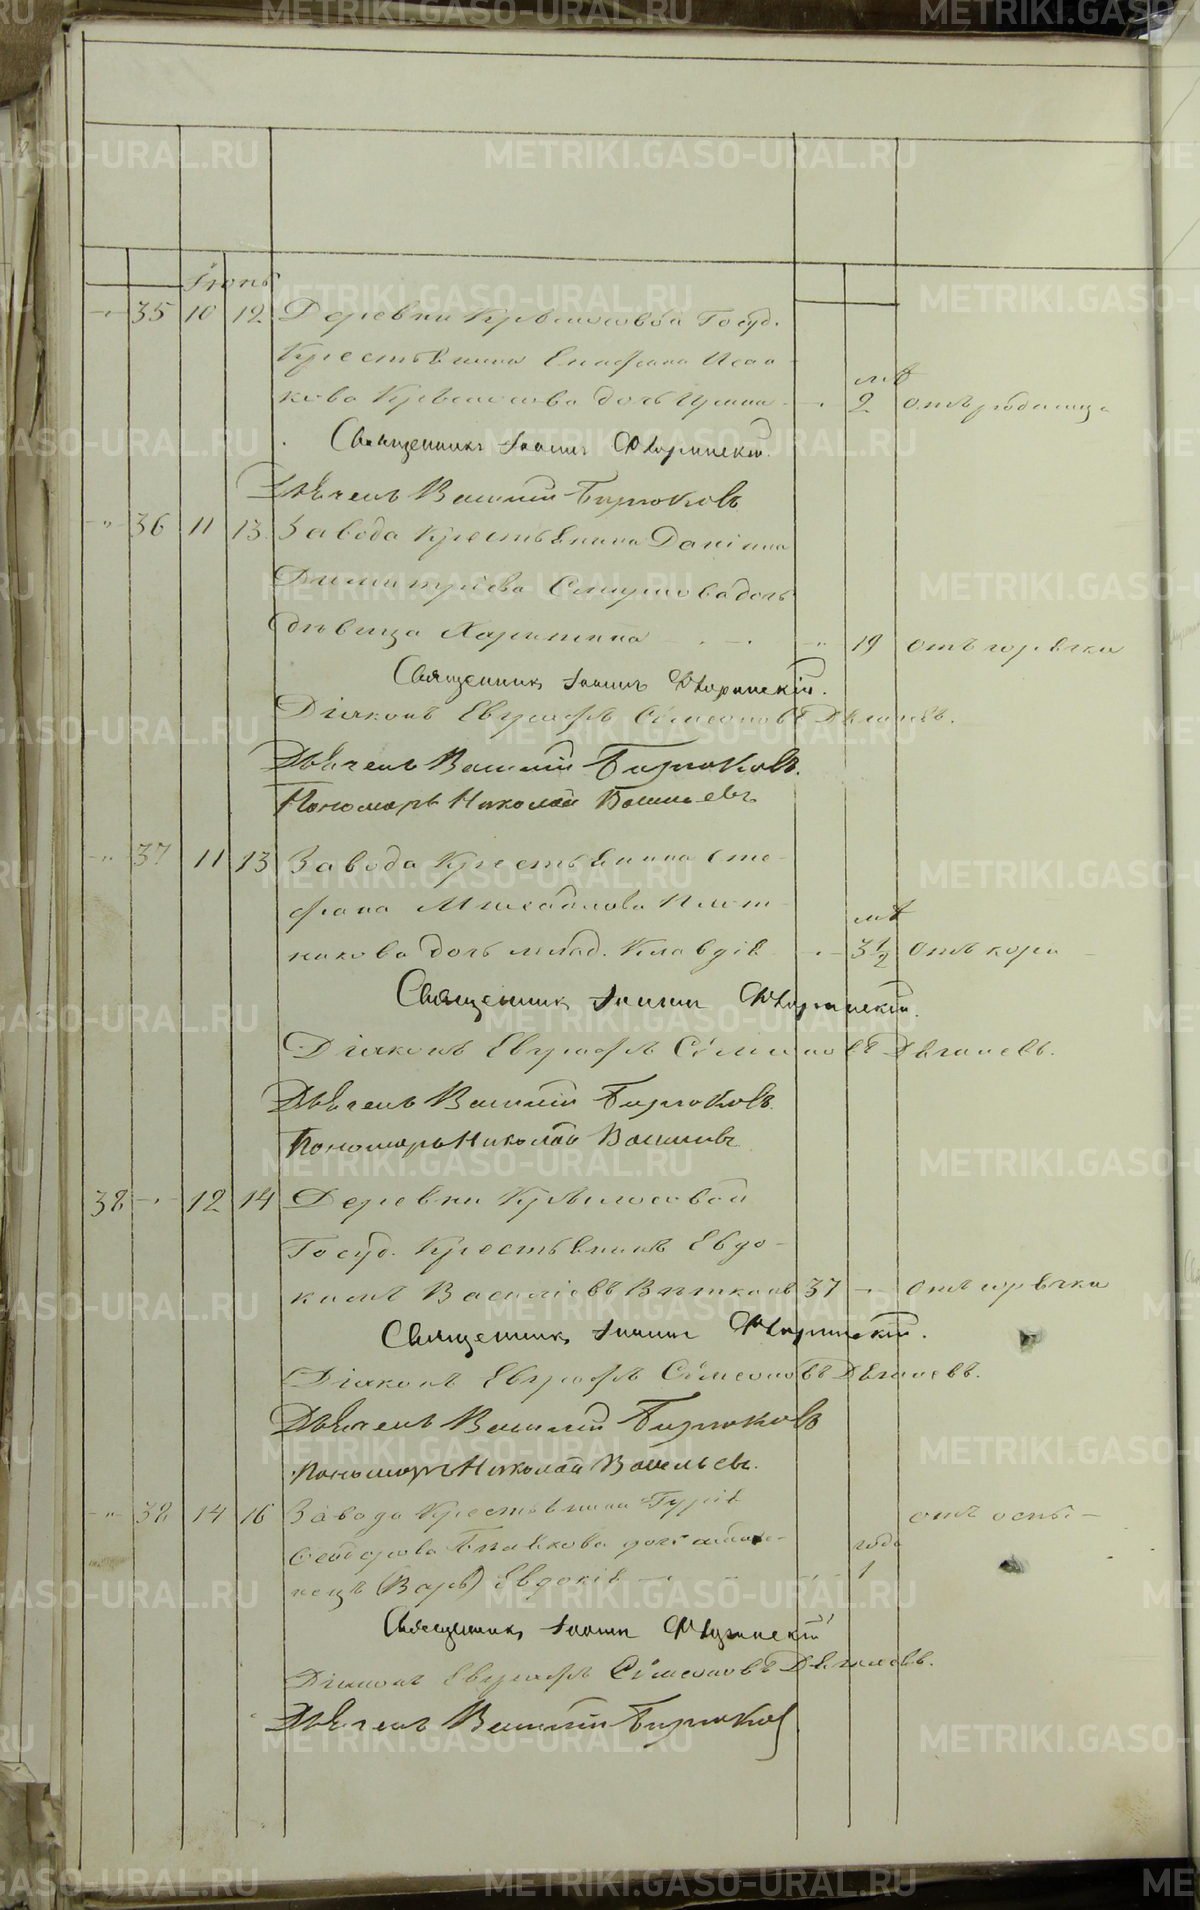 METRIKI.GASO-URAL.RU
Іюнь
35 10 12 Деревни Крылосовой Госуд.
Крестьянина Епифана Исаа-
кова Крылосова дочь
лѣт
2 отъ родимца
Священникъ Іоаннъ Флоринскій.
Дьячекъ Василій Бирюковъ
36 11 13 Завода Крестьянина Даніила
Димитріева дочь
дѣвица Харитина 19 отъ горячки
Священникъ Іоаннъ Флоринскій.
Діаконъ Евграфъ Сѵмеоновъ Дягилевъ.
Дьячекъ Василій Бирюковъ.
Пономарь Николай Васильевъ
37 11 13 Завода Крестьянина Сте-
фана Михайлова Плот-
никова дочь млад. Клавдія
лѣт
3 1/2 отъ кори
Священникъ Іоаннъ Флоринскій.
Діаконъ Евграфъ Сѵмеоновъ Дягилевъ.
Дьячекъ Василій Бирюковъ.
Пономарь Николай Васильевъ
38 12 14 Деревни Крылосовой
Госуд. Крестьянинъ Евдо-
кимъ Васильевъ 37 отъ горячки
Священникъ Іоаннъ Флоринскій.
Діаконъ Евграфъ Сѵмеоновъ Дягилевъ.
Дьячекъ Василій Бирюковъ
Пономарь Николай Васильевъ.
38 14 16 Завода Крестьянина Гурія отъ оспы
Ѳеодорова дочь
года
Евдокія 1
Священникъ Іоаннъ Флоринскій
Діаконъ Евграфъ Сѵмеоновъ Дягилевъ.
Дьячекъ Василій Бирюковъ